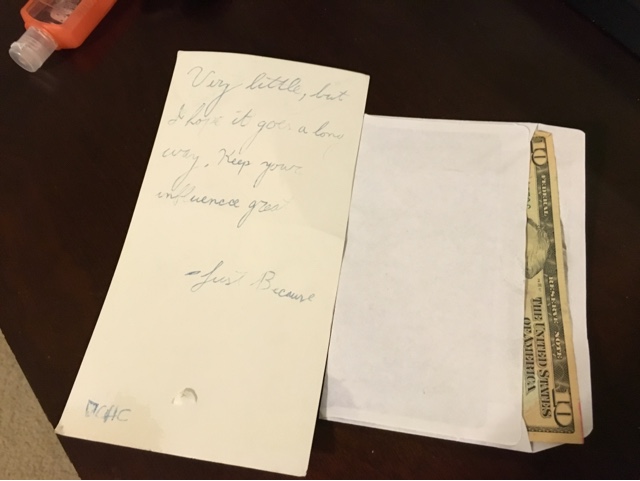 Very little, but
I hope it goes a long
way. Keep your
influence great
-Just Because
10
FEDERAL RESERVE NOTE
THE UNITED STATES
OF AMERICA
10